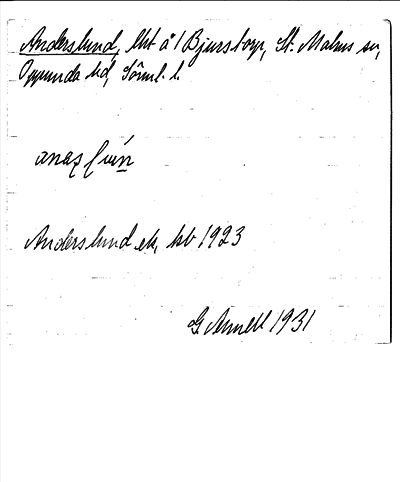 Anderslund, lht å 1 Bjurstorp, St. Malms sn,
Oppunda hd, Söml. l.
Anderslund ek, kb 1923
G Arnell 1931